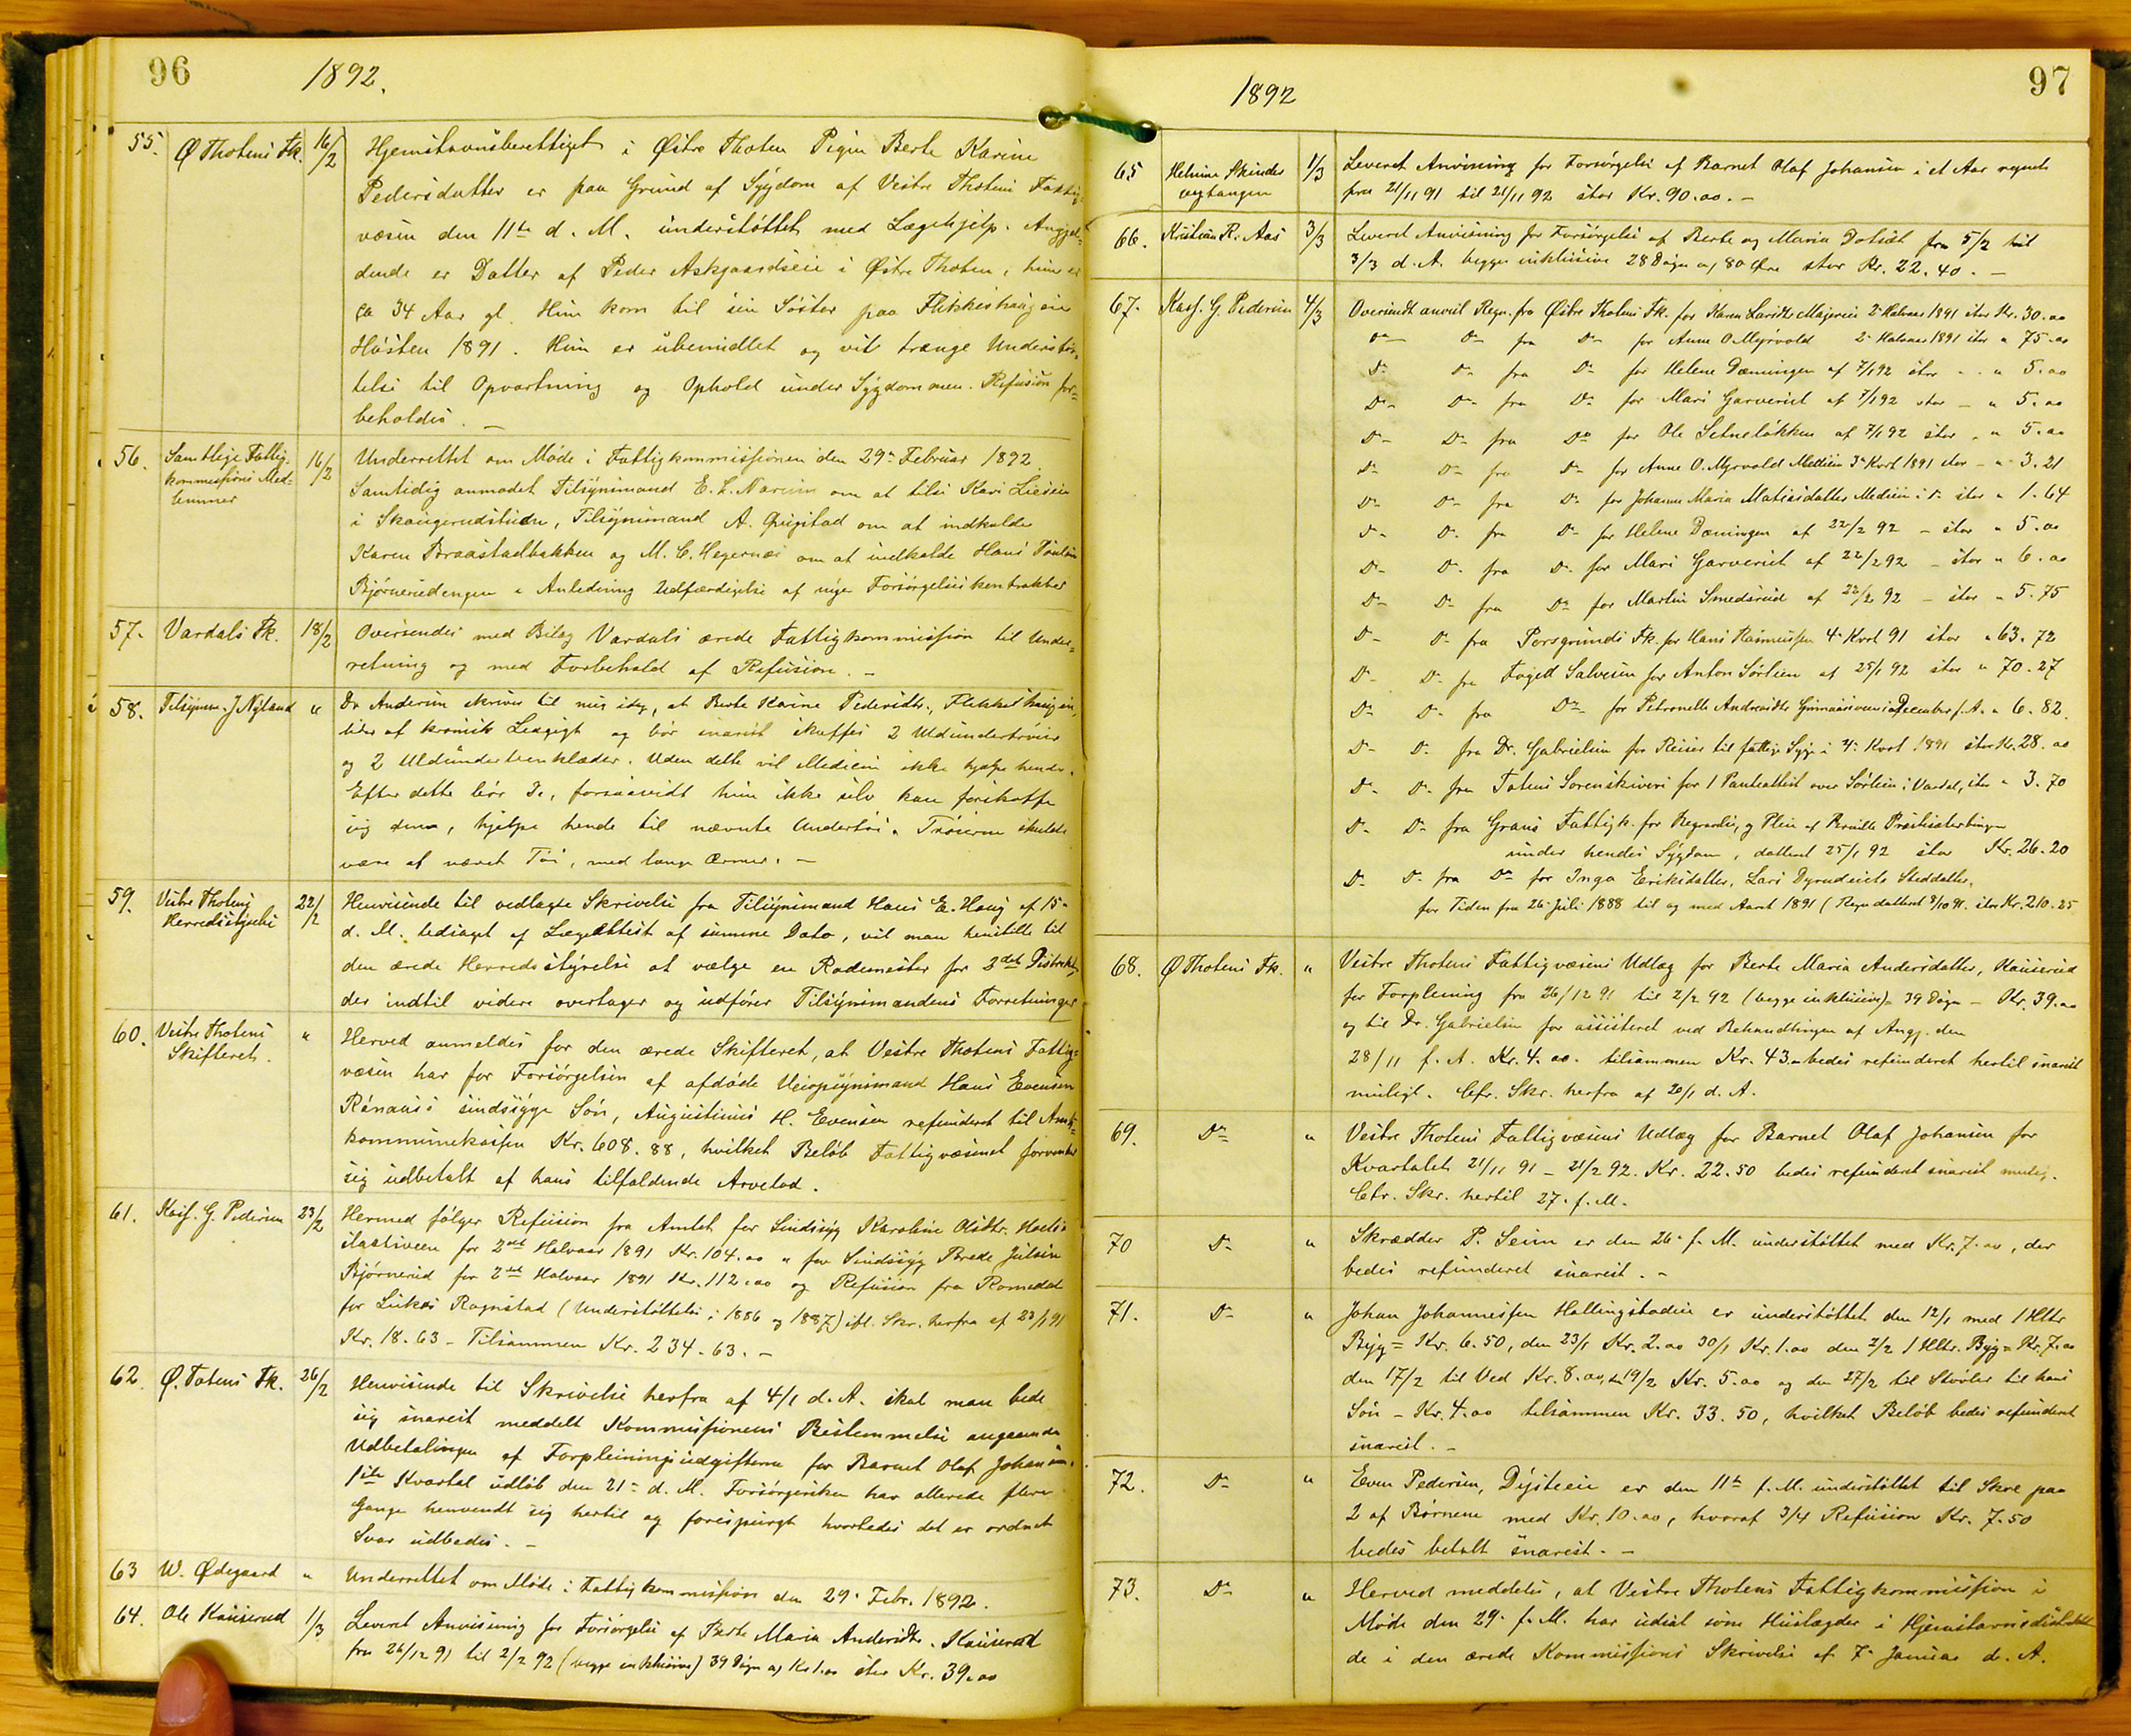 96
1892.
55. Ø Thotens Fk. 16/2 Hjemstavnsberettiget i Østre Thoten Pigen Berte Karine
Pedersdatter er paa Grund af Sygdom af Vestre Thotens Fattig-
væsen den 11te d. M. understøttet med Lægehjelp. Angjel-
dende er Datter af Peder Askjaardseie i Østre Thoten, hun er
ca 34 Aar gl. Hun kom til sin Søster paa Flikkeshaugen
Høsten 1891. Hun er ubemidlet og vil trænge Understøt-
telse til Opvartning og Ophold under Sygdommen. Refusion for-
beholdes. —
56. Samtlige Fattig- 16/2 Underrettet om Møde i Fattigkommissionen den 29de Februar 1892.
kommissions Med- Samtidig anmodet Tilsynsmand E. L. om at tilsi Kari
lemmer i , Tilsynsmand A. om at indkalde
Karen Braastadbakken og M. C. Hegernæs om at indkalde Hans
Bjørnerudengen i Anledning Udfærdigelse af nye Forsørgelseskontrakter
57. Vardals Fk. 18/2 Oversendes med Bilag Vardals ærede Fattigkommission til Under-
retning og med Forbehold af Refusion. —
58. Tilsynsm. J Nyland " Dr Andersen skriver til mig idag, at Berte Karine Pedersdtr., Flikkeshaugen,
lider af kronisk Ledgigt og bør snarest skaffes 2 Uldundertrøier
og 2 Uldunderbenklæder. Uden dette vil Medicin ikke hjelpe hende.
Efter dette bør De, forsaavidt hun ikke selv kan forskaffe
sig dem, hjelpe hende til nævnte Undertøi. Trøierne skulde
være af vævet Tøi, med lange Ærmer. —
59. Vestre Thotens 22/2 Henvisende til vedlagte Skrivelse fra Tilsynsmand Hans E. Haug af 15de
Herredsstyrelse d. M. ledsaget af Lægeattest af samme Dato, vil man henstille til
den ærede Herredsstyrelse at vælge en Rodemester for 3det Distrikt,
der indtil videre overtager og udfører Tilsynsmandens Forretninger
60. Vestre Thotens " Herved anmeldes for den ærede Skifteret, at Vestre Thotens Fattig-
Skifteret. væsen har for Forsørgelsen af afdøde Veiopsynsmand Hans Evensen
sindssyge Søn, Augustinus H. Evensen refunderet til Amts-
kommunekassen Kr. 608.88, hvilket Beløb Fattigvæsenet forventer
sig udbetalt af hans tilfaldende Arvelod.
61. Kass. G. Pedersen 23/2 Hermed følger Refusion fra Amtet for Sindssyg Karoline Olsdtr.
for 2det Halvaar 1891 Kr. 104.00 " for Sindssyg Brede Julsen
Bjørnerud for 2det Halvaar 1891 Kr. 112.00 og Refusion fra Romedal
for Lukas Rognstad (Understøttelse i 1886 og 1887) ifl. Skr. herfra af 23/1 91
Kr. 18.63 — Tilsammen Kr. 234.63. —
62. Ø. Totens Fk. 26/2 Henvisende til Skrivelse herfra af 4/1 d. A. skal man bede
sig snarest meddelt Kommissionens Bestemmelse angaaende
Udbetalingen af Forpleiningsudgifterne for Barnet Olaf Johansen.
1ste Kvartal udløb den 21de d. M. Forsørgersken har allerede flere
Gange henvendt sig hertil og forespurgt hvorledes det er ordnet
Svar udbedes. —
63 W. Ødegaard " Underrettet om Møde i Fattigkommission den 29de Febr. 1892.
64. Ole Kauserud 1/3 Leveret Anvisning for Forsørgelse af Berte Maria Andersdtr. Kauserud
fra 26/12 91 til 2/2 92 (begge inklusive) 39 Døgn a Kr 1.00 stor Kr. 39.00
1892
97
65 Helmine Skinder 1/3 Leveret Anvisning for Forsørgelse af Barnet Olaf Johansen i et Aar regnet
vegtangen fra 21/11 91 til 21/11 92 stor Kr. 90.00. —
66. Kristian R. Aas 3/3 Leveret Anvisning for Forsørgelse af Berte og Maria fra 5/2 til
3/3 d. A. begge inklusive 28 Døgn a 80 Øre stor Kr. 22.40. —
67. Kass. G. Pedersen 4/3 Oversendt anvist Regn. fra Østre Thotens Fk. for Karen Larsdtr. 2det Halvaar 1891 stor Kr. 30.00
Do Do fra Do for Anne O. Myrvold 2det Halvaar 1891 stor " 75.00
Do Do fra Do for Helene Dæningen af 7/1 92 stor - - " 5.00
Do Do fra Do for Mari Garverict af 7/1 92 stor - " 5.00
Do Do fra Do for Ole Setneløkken af 7/1 92 stor - " 5.00
Do Do fra Do for Anne O. Myrvold Medicin 3de Kvrt 1891 stor - " 3.21
Do Do fra Do for Johanne Maria Matiasdatter Medicin i Do stor " 1.64
Do Do fra Do for Helene Dæningen af 22/2 92 - stor " 5.00
Do Do fra Do for Mari Garverict af 22/2 92 - stor " 6.00
Do Do fra Do for Martin Smedsrud af 22/2 92 - stor " 5.75
Do Do fra Porsgrunds Fk. for Hans Rasmussen 4de Kvrt 91 stor " 63.72
Do Do fra Foged Salvesen for Anton Sørlien af 25/1 92 stor " 70.27
Do Do fra Do for Petronelle Andersdtr. i December f. A. " 6.82.
Do Do fra Dr. Gabrielsen for Reiser til fattige Syge i 4de Kvrt 1891 stor Kr. 28.00
Do Do fra Totens Sorenskriveri for 1 Panteattest over Sørlien i Vardal, stor " 3.70
Do Do fra Grans Fattigk. for Begravelse og Pleie af Pernille
under hendes Sygdom, dateret 25/1 92 stor Kr. 26.20
Do Do fra Do for Inga Eriksdatter, Lars Steddatter,
for Tiden fra 26 Juli 1888 til og med Aaret 1891 (Regn dateret 9/10 91. stor Kr. 210.25
68. Ø Thotens Fk. " Vestre Thotens Fattigvæsens Udlæg for Berte Maria Andersdatter, Kauserud
for Forpleining fra 26/12 91 til 2/2 92 (begge inklusive) = 39 Døgn — Kr. 39.00
og til Dr. Gabrielsen for assisteret ved Behandlingen af Angj. den
28/11 f. A. Kr. 4.00. tilsammen Kr. 43.- bedes refunderet hertil snarest
muligt. Cfr. Skr. herfra af 20/1 d. A.
69. Do " Vestre Thotens Fattigvæsens Udlæg for Barnet Olaf Johansen for
Kvartalet 21/11 91 — 21/2 92. Kr. 22.50 bedes refunderet snarest mulig.
Cfr. Skr. hertil 27. f. M.
70 Do " Skrædder P. Seim er den 26de f. M. understøttet med Kr. 7.00, der
bedes refunderet snarest. —
71. Do " Johan Johannessen Hallingstadeie er understøttet den 12/1 med 1 Hltr
Byg = Kr. 6.50, den 23/1 Kr. 2.00 30/1 Kr. 1.00 den 2/2 1 Hltr. Byg = Kr. 7.00
den 17/2 til Ved Kr. 8.00, den 19/2 Kr. 5.00 og den 27/2 til Støvler til hans
Søn — Kr. 4.00 tilsammen Kr. 33.50, hvilket Beløb bedes refunderet
snarest. —
72. Do " Even Pedersen, Dysteeie er den 11te f. M. understøttet til Skoe paa
2 af Børnene med Kr. 10.00, hvoraf 3/4 Refusion Kr. 7.50
bedes betalt snarest. —
73. Do " Herved meddeles, at Vestre Thotens Fattigkommission i
Møde den 29de f. M. har udsat som Huslægder i
de i den ærede Kommissions Skrivelse af 7de Januar d. A.